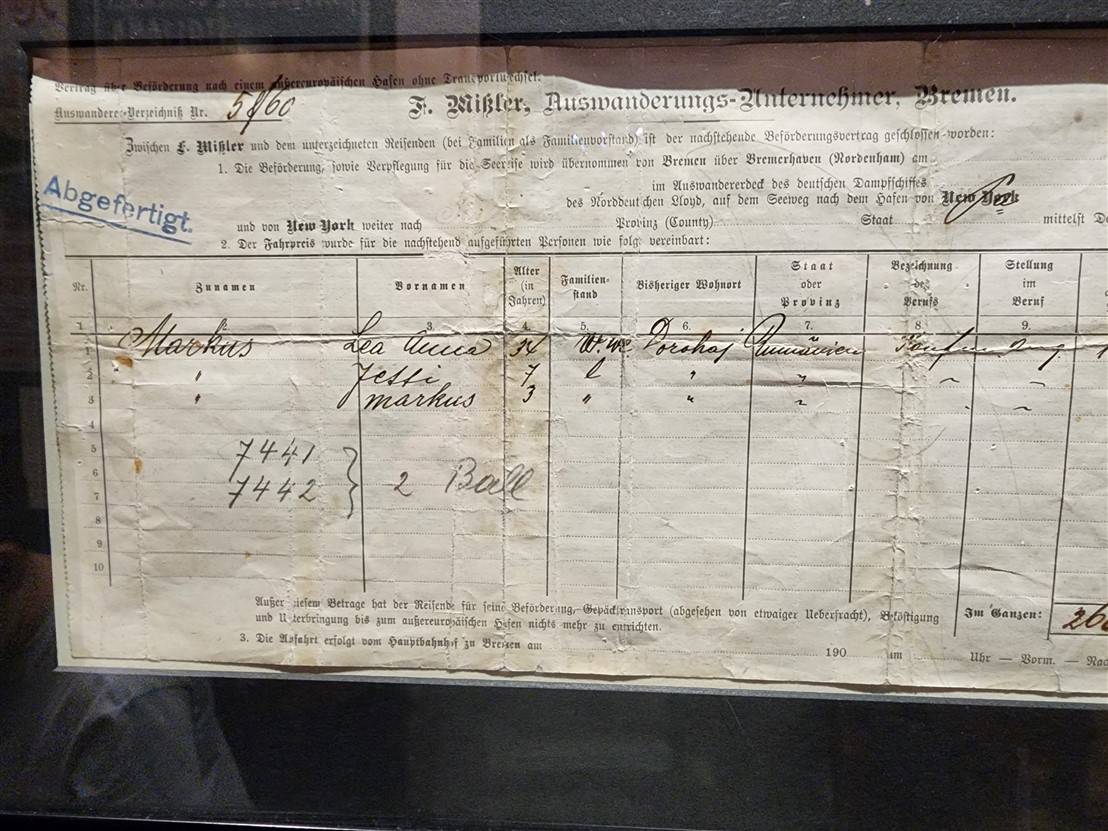 Vertrag über Beförderung nach einem außereuropäischen Hafen ohne Transportwechsel.
Auswanderer-Verzeichniß Nr. 5960
F. Mißler, Auswanderungs-Unternehmer, Bremen.
Zwischen F. Mißler und dem unterzeichneten Reisenden (bei Familien als Familienvorstand) ist der nachstehende Beförderungsvertrag geschlossen worden:
1. Die Beförderung, sowie Verpflegung für die Seereise wird übernommen von Bremen über Bremerhaven (Nordenham) am
Abgefertigt.
im Auswandererdeck des deutschen Dampfschiffes
des Norddeutschen Lloyd, auf dem Seeweg nach dem Hafen von New York
und von New York weiter nach Provinz (County) Staat mittelst
2. Der Fahrpreis wurde für die nachstehend aufgeführten Personen wie folgt vereinbart:
Nr. Zunamen Vornamen Alter (in Jahren) Familien-stand Bisheriger Wohnort Staat oder Provinz Bezeichnung des Berufs Stellung im Beruf
1. 2. 3. 4. 5. 6. 7. 8. 9.
1 Markus Lea Anna 34 Dorohoj Rumänien
2 " Jetti 7 " "
3 " Markus 3 " " "
4
5 7441
6 2 Ball
7 7442
8
9
10
Außer diesem Betrage hat der Reisende für seine Beförderung, Gepäcktransport (abgesehen von etwaiger Ueberfracht), Beköstigung
und Unterbringung bis zum außereuropäischen Hafen nichts mehr zu entrichten.
Im Ganzen: 260
3. Die Abfahrt erfolgt vom Hauptbahnhof zu Bremen am 190 um Uhr — Vorm. —